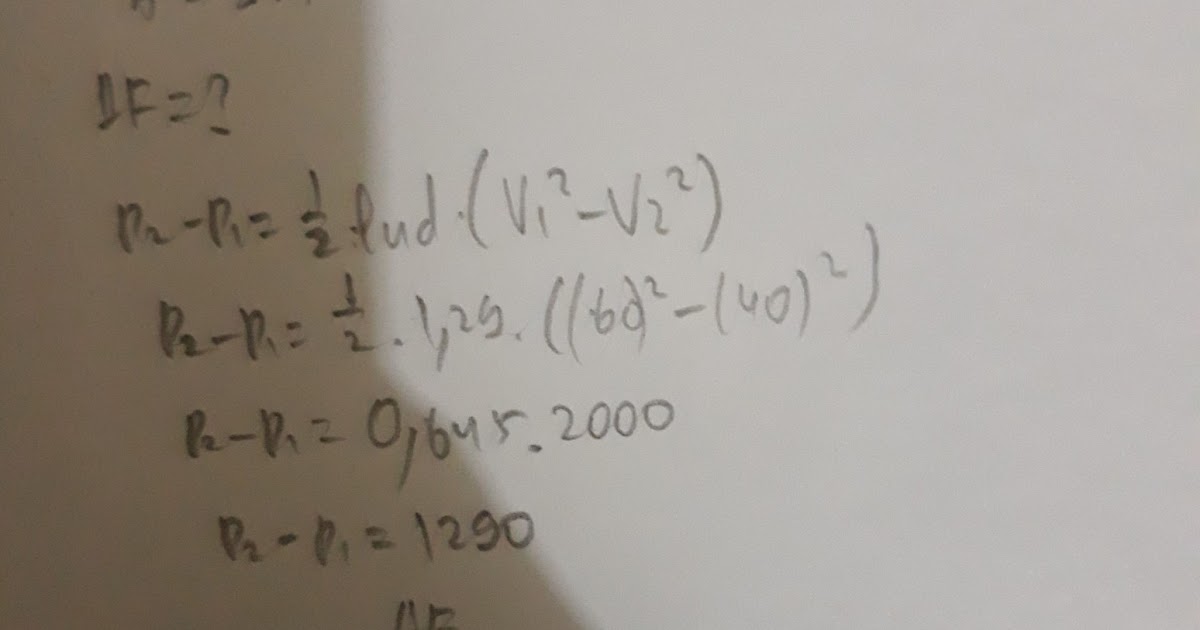 ΔF = ?
P₂ - P₁ = 1/2 . ρud . (V₁² - V₂²)
P₂ - P₁ = 1/2 . 1,29 . ((60)² - (40)²)
P₂ - P₁ = 0,645 . 2000
P₂ - P₁ = 1290
ΔF